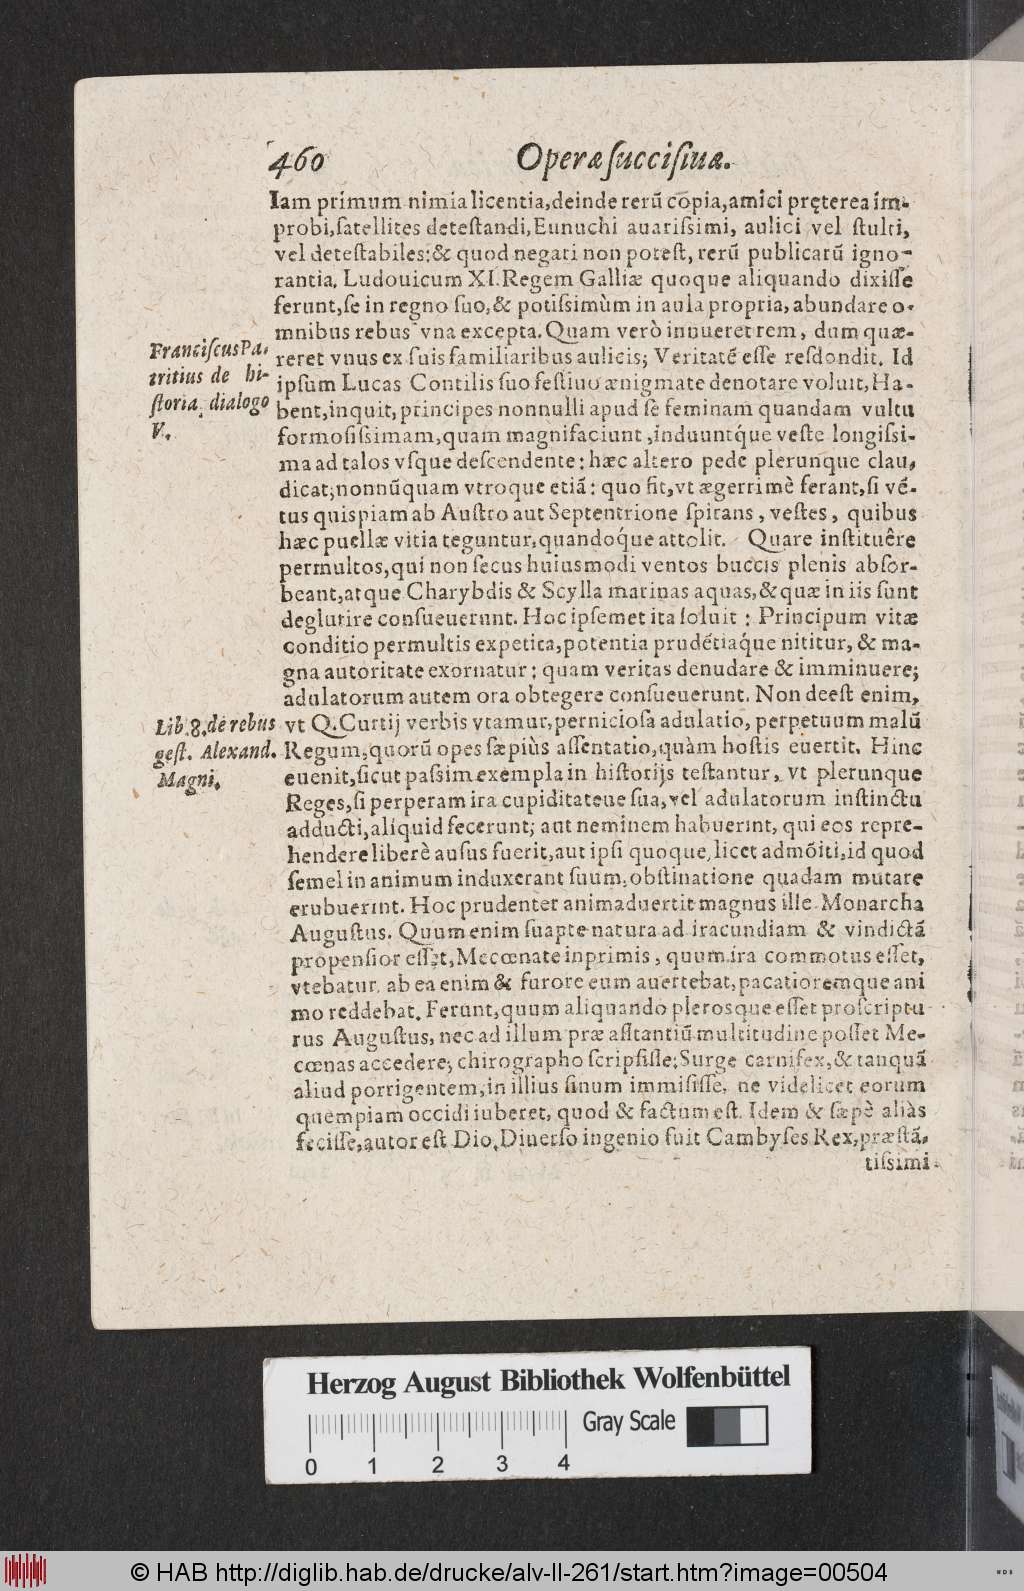 460 Operæ ſucciſiuæ.
Iam primum nimia licentia, deinde rerũ copia, amici pręterea im-
probi, ſatellites deteſtandi, Eunuchi auariſsimi, aulici vel ſtulti,
vel deteſtabiles: & quod negari non poteſt, rerũ publicarũ igno-
rantia. Ludouicum XI. Regem Galliæ quoque aliquando dixiſſe
ferunt, ſe in regno ſuo, & potiſsimùm in aula propria, abundare o-
mnibus rebus vna excepta. Quam verò innueret rem, dum quæ-
reret vnus ex ſuis familiaribus aulicis; Veritatẽ eſſe reſdondit. Id
ipſum Lucas Contilis ſuo feſtiuo ænigmate denotare voluit, Ha-
bent, inquit, principes nonnulli apud ſe feminam quandam vultu
formoſiſsimam, quam magnifaciunt, induuntq́ue veſte longiſsi-
ma ad talos vſque deſcendente: hæc altero pede plerunque clau-
dicat; nonnũquam vtroque etiã: quo fit, vt ægerrimè ferant, ſi vẽ-
tus quispiam ab Auſtro aut Septentrione ſpirans, veſtes, quibus
hæc puellæ vitia teguntur, quandoq́ue attolit. Quare inſtituêre
permultos, qui non ſecus huiusmodi ventos buccis plenis abſor-
beant, atque Charybdis & Scylla marinas aquas, & quæ in iis ſunt
deglutire conſueuerunt. Hoc ipſemet ita ſoluit: Principum vitæ
conditio permultis expetita, potentia prudẽtiaq́ue nititur, & ma-
gna autoritate exornatur: quam veritas denudare & imminuere;
adulatorum autem ora obtegere conſueuerunt. Non deeſt enim,
vt Q. Curtij verbis vtamur, pernicioſa adulatio, perpetuum malũ
Regum, quorũ opes ſæpiùs aſſentatio, quàm hoſtis euertit. Hinc
euenit, ſicut paſsim exempla in hiſtorijs teſtantur, vt plerunque
Reges, ſi perperam ira cupiditateue ſua, vel adulatorum inſtinctu
adducti, aliquid fecerunt; aut neminem habuerint, qui eos repre-
hendere liberè auſus fuerit, aut ipſi quoque, licet admõiti, id quod
ſemel in animum induxerant ſuum, obſtinatione quadam mutare
erubuerint. Hoc prudenter animaduertit magnus ille Monarcha
Auguſtus. Quum enim ſuapte natura ad iracundiam & vindictã
propenſior eſſet, Mecœnate inprimis, quum ira commotus eſſet,
vtebatur. ab ea enim & furore eum auertebat, pacatioremque ani
mo reddebat. Ferunt, quum aliquando plerosque eſſet proſcriptu
rus Auguſtus, nec ad illum præ aſtantiũ multitudine poſſet Me-
cœnas accedere; chirographo ſcripſiſſe; Surge carnifex, & tanquã
aliud porrigentem, in illius ſinum immiſiſſe, ne videlicet eorum
quempiam occidi iuberet, quod & factum eſt. Idem & ſæpè aliàs
feciſſe, autor eſt Dio. Diuerſo ingenio fuit Cambyſes Rex, præſtã-
tiſsimi
Franciſcus Pa-
tritius de hi-
ſtoria. dialogo
V.
Lib. 8. de rebus
geſt. Alexand.
Magni.
Herzog August Bibliothek Wolfenbüttel
Gray Scale
0 1 2 3 4
© HAB http://diglib.hab.de/drucke/alv-ll-261/start.htm?image=00504